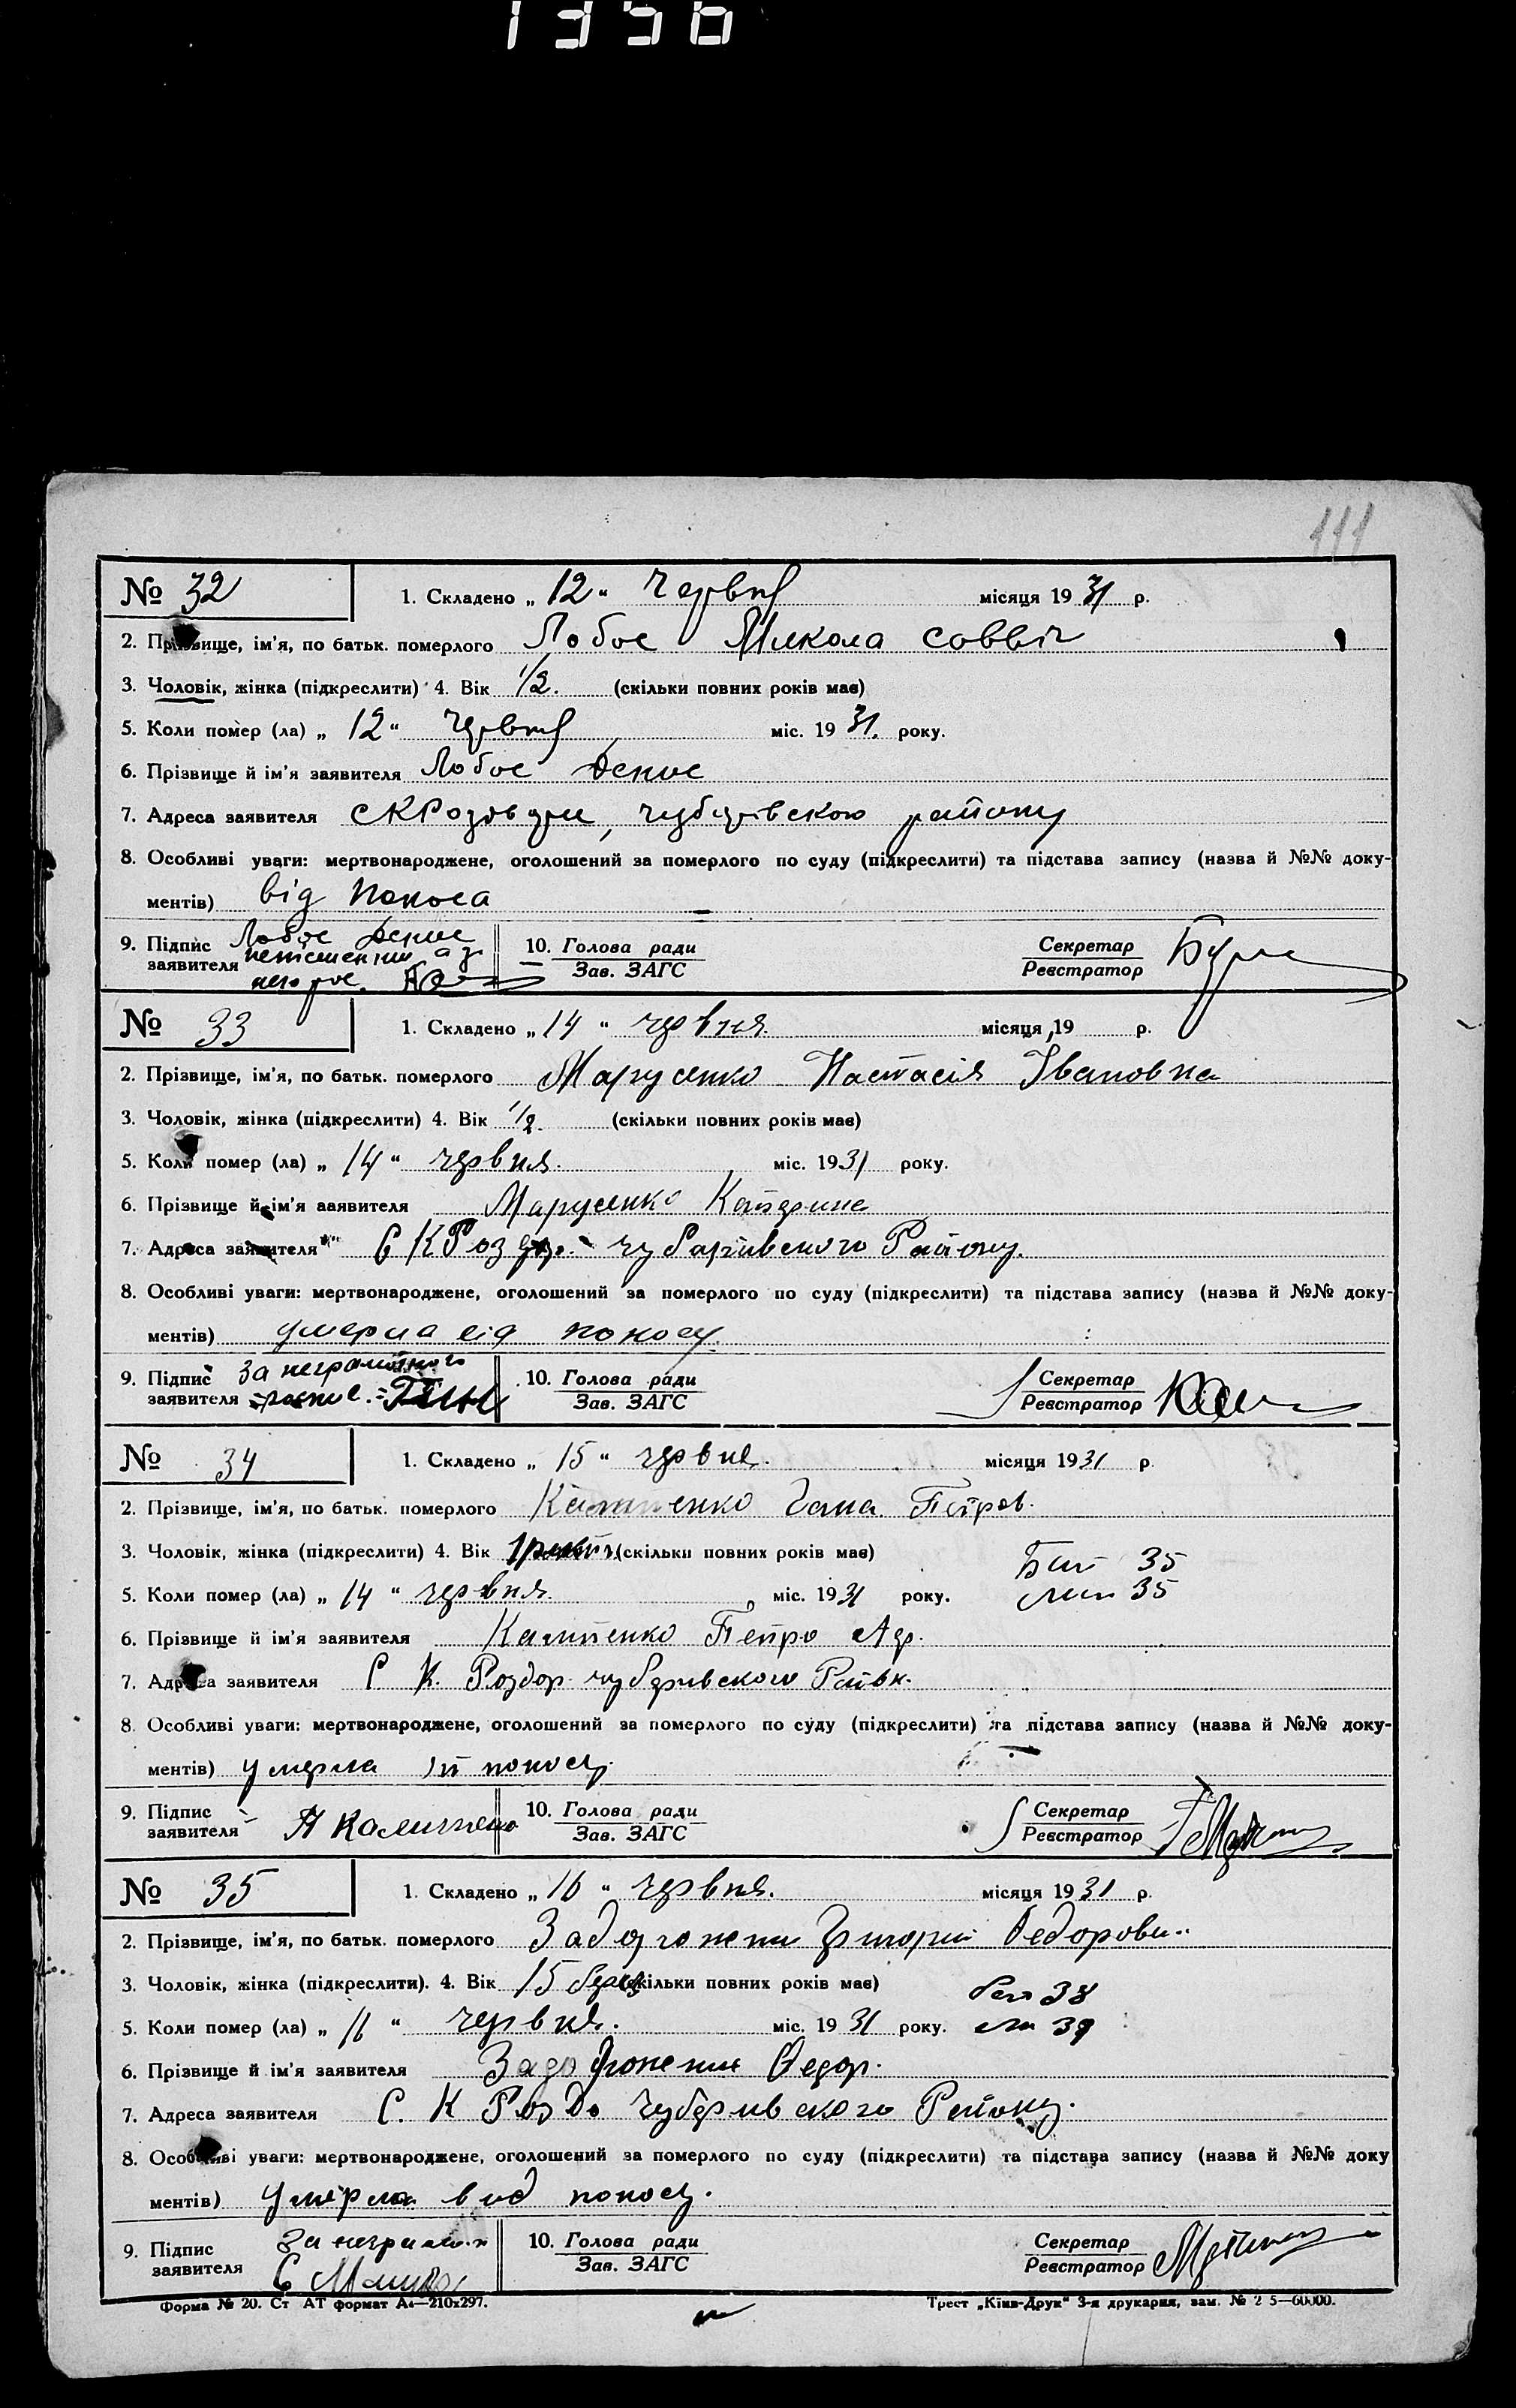 1356
111
№ 32 1. Складено „ 12 “ червня місяця 19 31 р.
2. Прізвище, ім'я, по батьк. померлого Лобос Микола Саввіч
3. Чоловік, жінка (підкреслити) 4. Вік 1/2. (скільки повних років має)
5. Коли помер (ла) „ 12 “ червня міс. 19 31. року.
6. Прізвище й ім'я заявителя Лобос Денис
7. Адреса заявителя СКРоздори, чубарівского району
8. Особливі уваги: мертвонароджене, оголошений за померлого по суду (підкреслити) та підстава запису (назва й №№ доку-
ментів) від поноса
9. Підпис Лобос Денис 10. Голова ради Секретар
заявителя Зав. ЗАГС Реєстратор
№ 33 1. Складено „ 14 “ червня. місяця 19 р.
2. Прізвище, ім'я, по батьк. померлого Марусенко Настасія Івановна
3. Чоловік, жінка (підкреслити) 4. Вік 1/2. (скільки повних років має)
5. Коли помер (ла) „ 14 “ червня. міс. 19 31 року.
6. Прізвище й ім'я заявителя Марусенко Катерина
7. Адреса заявителя С К Роздор. чубарівского Району.
8. Особливі уваги: мертвонароджене, оголошений за померлого по суду (підкреслити) та підстава запису (назва й №№ доку-
ментів) умерла від поносу.
9. Підпис За неграмотного 10. Голова ради Секретар
заявителя Зав. ЗАГС Реєстратор
№ 34 1. Складено „ 15 “ червня. місяця 19 31 р.
2. Прізвище, ім'я, по батьк. померлого Гана Петров.
3. Чоловік, жінка (підкреслити) 4. Вік (скільки повних років має)
35
5. Коли помер (ла) „ 14 “ червня. міс. 19 31 року. 35
6. Прізвище й ім'я заявителя Петро
7. Адреса заявителя С. К. Роздор чубарівского
8. Особливі уваги: мертвонароджене, оголошений за померлого по суду (підкреслити) та підстава запису (назва й №№ доку-
ментів) умерла від поносу.
9. Підпис 10. Голова ради Секретар
заявителя Зав. ЗАГС Реєстратор
№ 35 1. Складено „ 16 “ червня. місяця 19 31 р.
2. Прізвище, ім'я, по батьк. померлого Григорий Федорович
3. Чоловік, жінка (підкреслити). 4. Вік 15 (скільки повних років має)
38
5. Коли помер (ла) „ 16 “ червня. міс. 19 31 року. 39
6. Прізвище й ім'я заявителя Федор.
7. Адреса заявителя С. К Роздо Чубарівского Району.
8. Особливі уваги: мертвонароджене, оголошений за померлого по суду (підкреслити) та підстава запису (назва й №№ доку
ментів) умерла вид поносу.
9. Підпис За 10. Голова ради Секретар
заявителя Зав. ЗАГС Реєстратор
Форма № 20. Ст АТ формат А4—210х297. Трест „Київ-Друк“ 3-я друкарня, зам. № 2 5—60000.